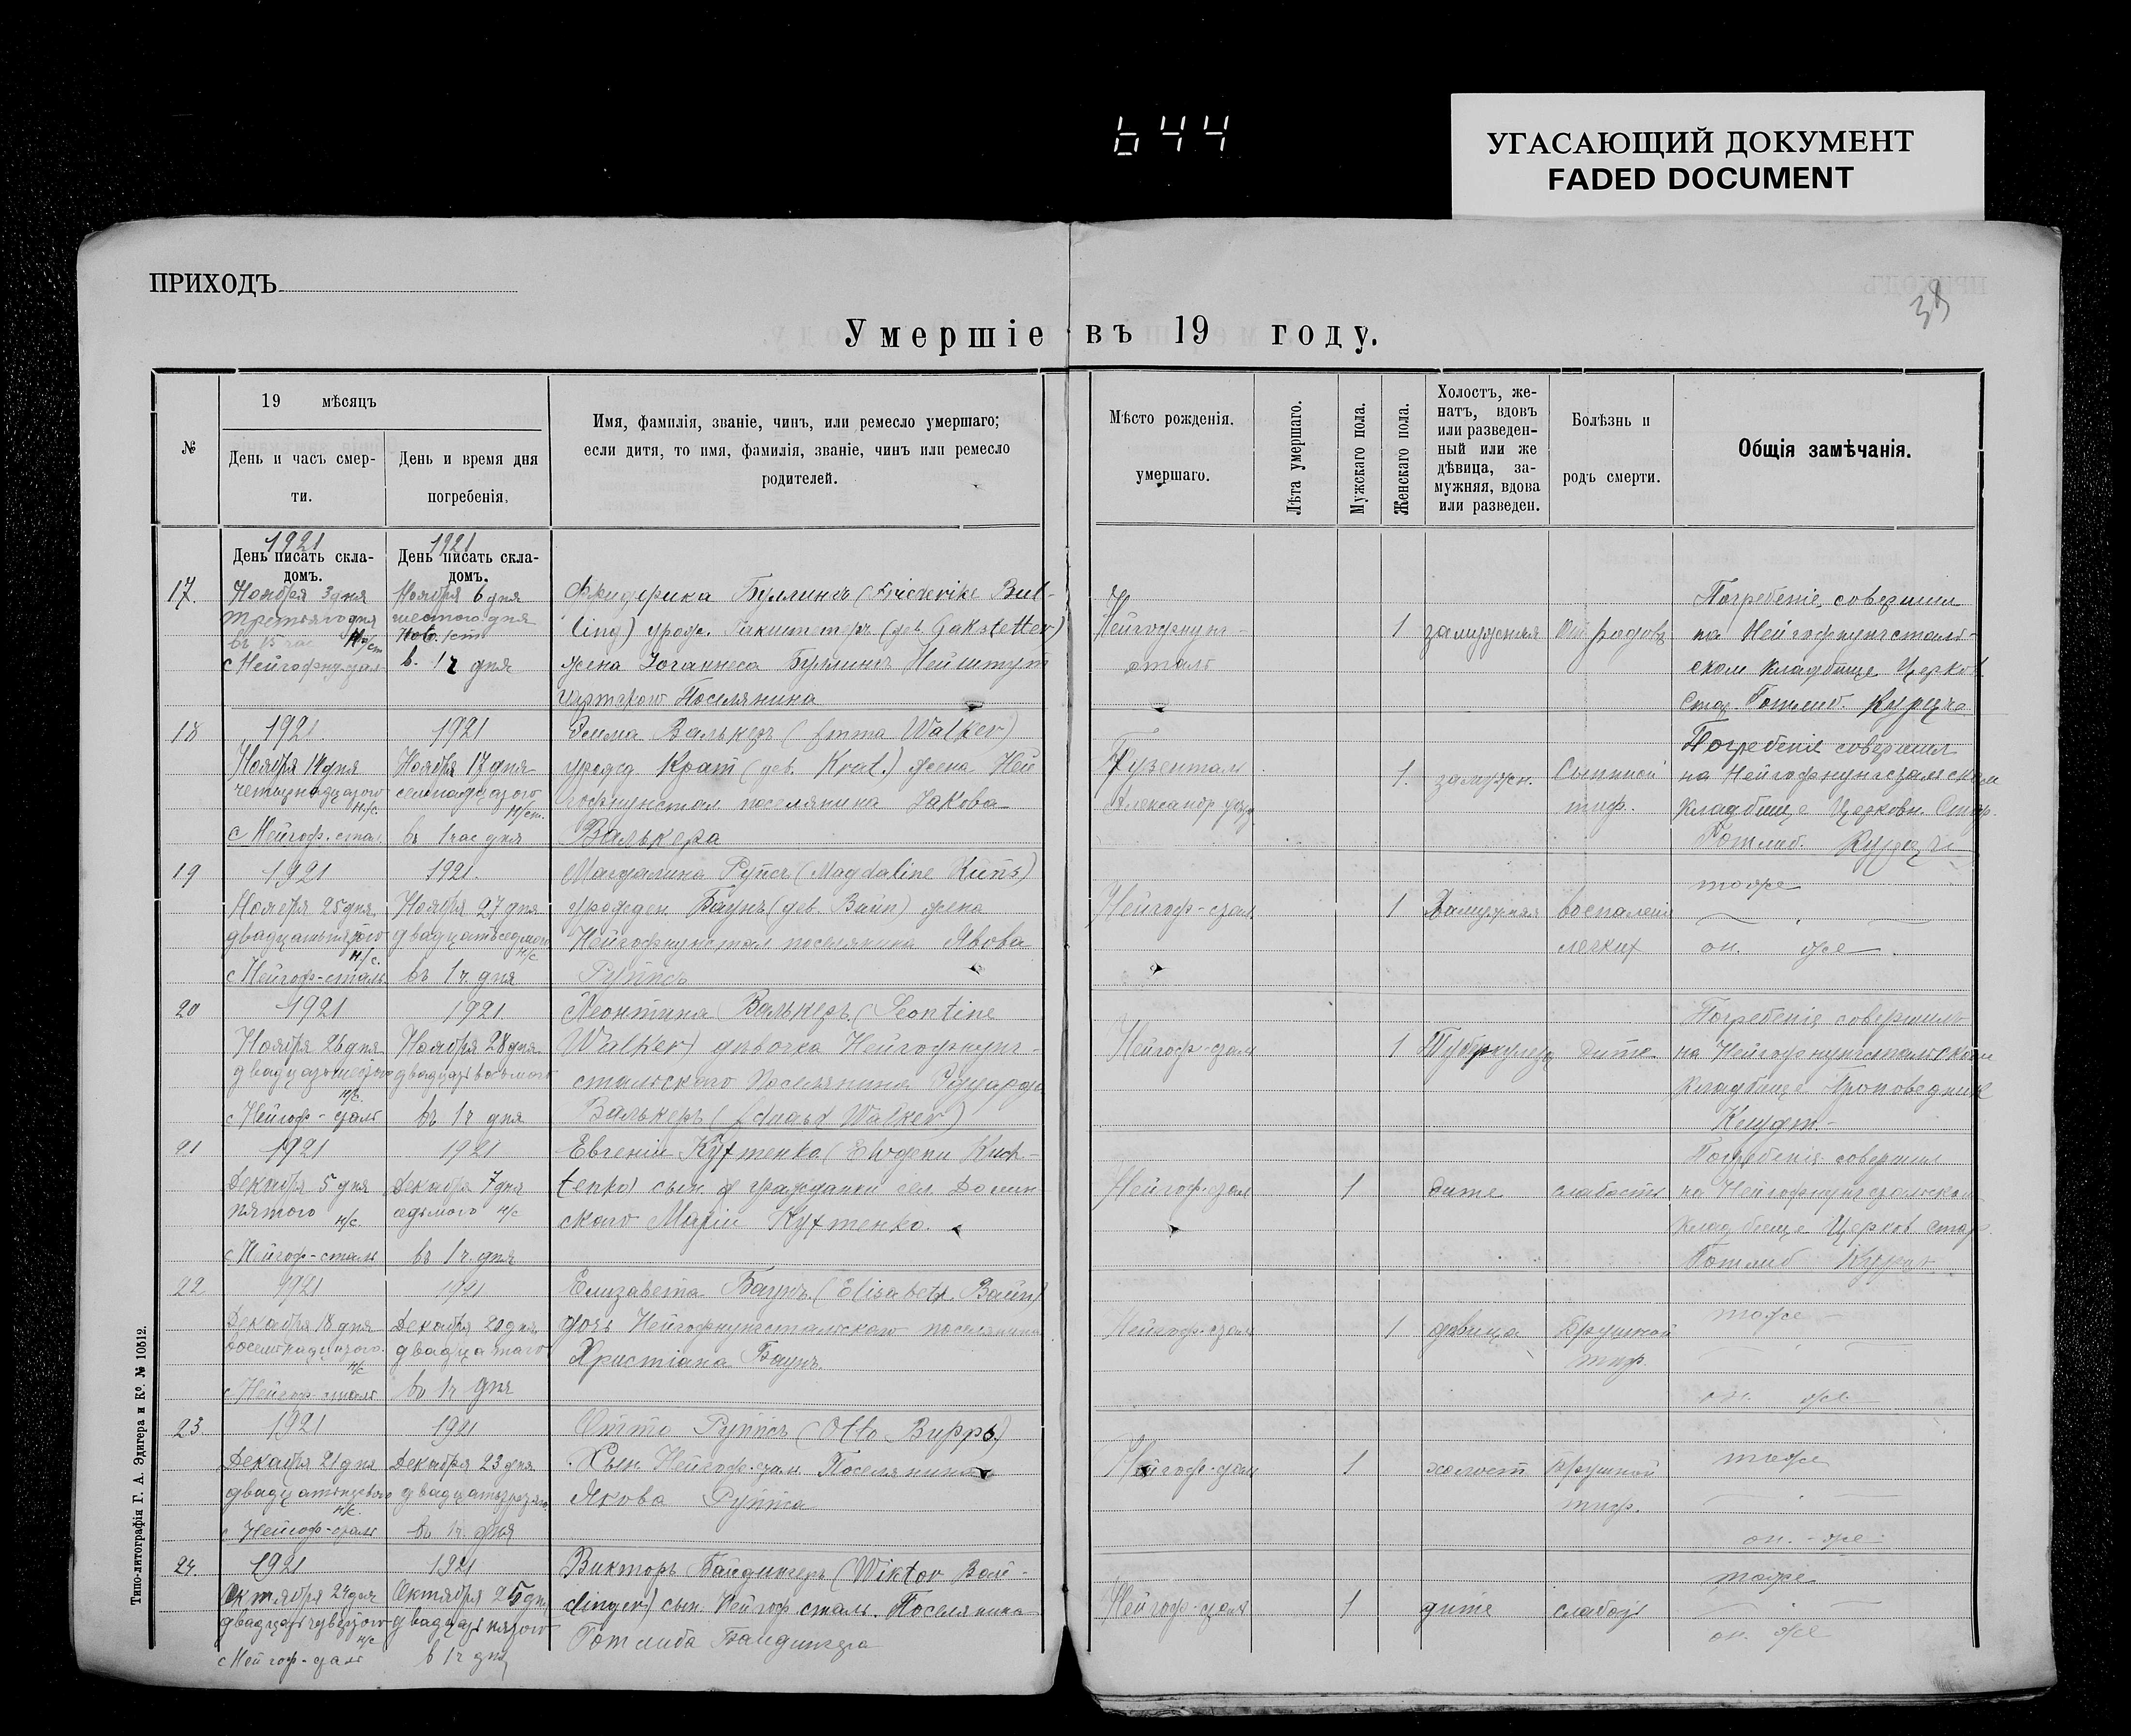 644
УГАСАЮЩИЙ ДОКУМЕНТ
FADED DOCUMENT
ПРИХОДЪ
Умершіе въ 19 году.
№
19 мѣсяцъ
День и часъ смер-
ти.
День и время дня
погребенія.
Имя, фамилія, званіе, чинъ, или ремесло умершаго;
если дитя, то имя, фамилія, званіе, чинъ или ремесло
родителей.
Мѣсто рожденія.
умершаго.
Лѣта умершаго.
Мужскаго пола.
Женскаго пола.
Холостъ, же-
натъ, вдовъ
или разведен-
ный или же
дѣвица, за-
мужняя, вдова
или разведен.
Болѣзнь и
родъ смерти.
Общія замѣчанія.
1921
День писать скла-
домъ.
1921
День писать скла-
домъ.
17.
Ноября 3 дня
третьяго дня
въ 15 час н/ст
Ноября 6 дня
шестого дня
в. 1 ч дня
Фридерика Буллингъ (Friederike Bul-
ling) урож. Гакштетеръ (geb. Gakstetter)
жена Іоганнеса Буллингъ Нейштут
гартского Поселянина
Нейгофнунг-
сталь
1
замужняя
Погребеніе совершил
на Нейгофнунгсталь-
ском кладбище Церков.
Стар. Готлиб.
18
1921
Ноября 14 дня
четырнадцатого
н/с.
с Нейгоф. стал.
1921
Ноября 17 дня
семнадцатого
н/ст.
въ 1 час дня
Эмма Валькеръ (Emma Walker)
урожд Крат (geb. Krat.) жена Ней
гофнунстал поселянина Якова
Валькера
Александр. уезд.
1.
замужн.
Сыпной
тиф.
Погребеніе совершил
на Нейгофнунгстальском
Кладбище Церковн. Стар.
Готлиб.
19
1921
Ноября 25 дня
двадцатьпятого
н/с.
с Нейгоф-сталь
1921.
Ноября 27 дня
двадцатьседмого
н/с
въ 1 ч. дня
Магдалина (Magdaline
урожден. Баунъ (geb. Baun) жена
Нейгофнунстал поселянина Якова
Нейгоф-стал
1
Замужняя
воспаление
легких
тоже
он. же
20
1921
Ноября 26 дня
двадцатьшестого
н/с.
с Нейгоф-сталь
1921
Ноября 28 дня
двадцатьвосьмого
въ 1 ч дня
Леонтина Валькеръ (Leontine
Walker) дивочка Нейгофнунг-
стальского Поселянина Эдуарда
Валькеръ (Eduard Walker)
Нейгоф-стал
1
Туберкулез
дите
Погребеніе совершилъ
на Нейгофнунгстальском
Кладбище Проповедник
21
1921
Декабря 5 дня
пятого н/с
с Нейгоф-сталь
1921
Декабря 7 дня
седьмого н/с
въ 1 ч. дня
Евгеній Кухтенко (Ewgeni Kuch-
tenko) сын гражданки сел. Долин
ского Маріи Кухтенко.
Нейгоф-стал
1
дите
слабость
Погребеніе совершил
на Нейгофнунгстальском
Кладбище Церков. стар.
Готлиб
22
1921
Декабря 18 дня
восемнадцатого.
н/с
с Нейгоф-сталь
1921
Декабря 20 дня
двадцатого
въ 1 ч дня
Елизавета Баунъ. (Elisabeth Baun)
дочь Нейгофнунгстальского поселянина
Христіана Баунъ.
Нейгоф-стал
1
девица
Брушной
тиф.
тоже
он. же
23
1921
Декабря 21 дня
двадцатьпервого
н/с.
с Нейгоф-сталь
1921
Декабря 23 дня
въ 1 ч. дня
Отто Руппъ (Otto Rupps)
Сын Нейгоф-стал. Поселянина
Якова Руппа
Нейгоф-стал
1
холост
Брушной
тиф.
тоже
он. же
24.
1921
Октября 24 дня
н/с
с Нейгоф-сталь
1921
Октября 25 дня
двадцатьпятого
в 1 ч дня
Викторъ Байдингеръ (Wiktor Bai-
dinger) сын Нейгоф сталь. Поселянина
Готлиба Байдингера
Нейгоф-сталь
1
дите
слабость
тоже
он. же
Типо-литографія Г. А. Эдигера и К⁰. № 10512.